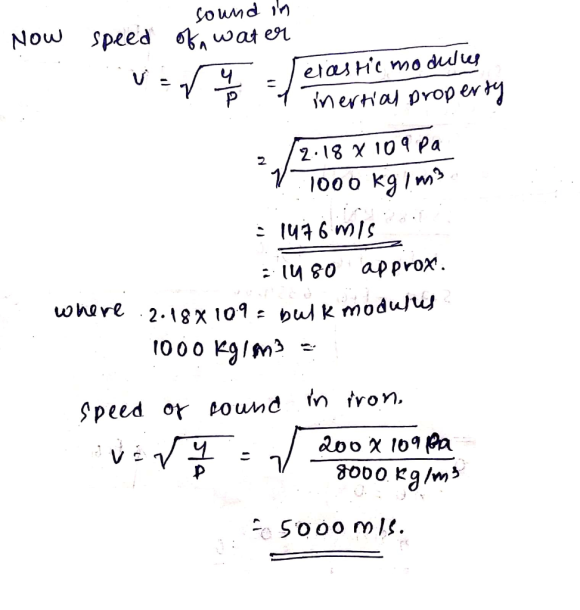 sound in
Now speed of ‸ water
v = √ 4/p = √ elastic modulus / inertial property
= √ 2.18 x 109 Pa / 1000 kg/m3
= 1476 m/s
= 1480 approx.
where 2.18 x 109 = bulk modulus
1000 kg/m3 =
speed of sound in iron.
v = √ 4/p = √ 200 x 109 Pa / 8000 kg/m3
= 5000 m/s.